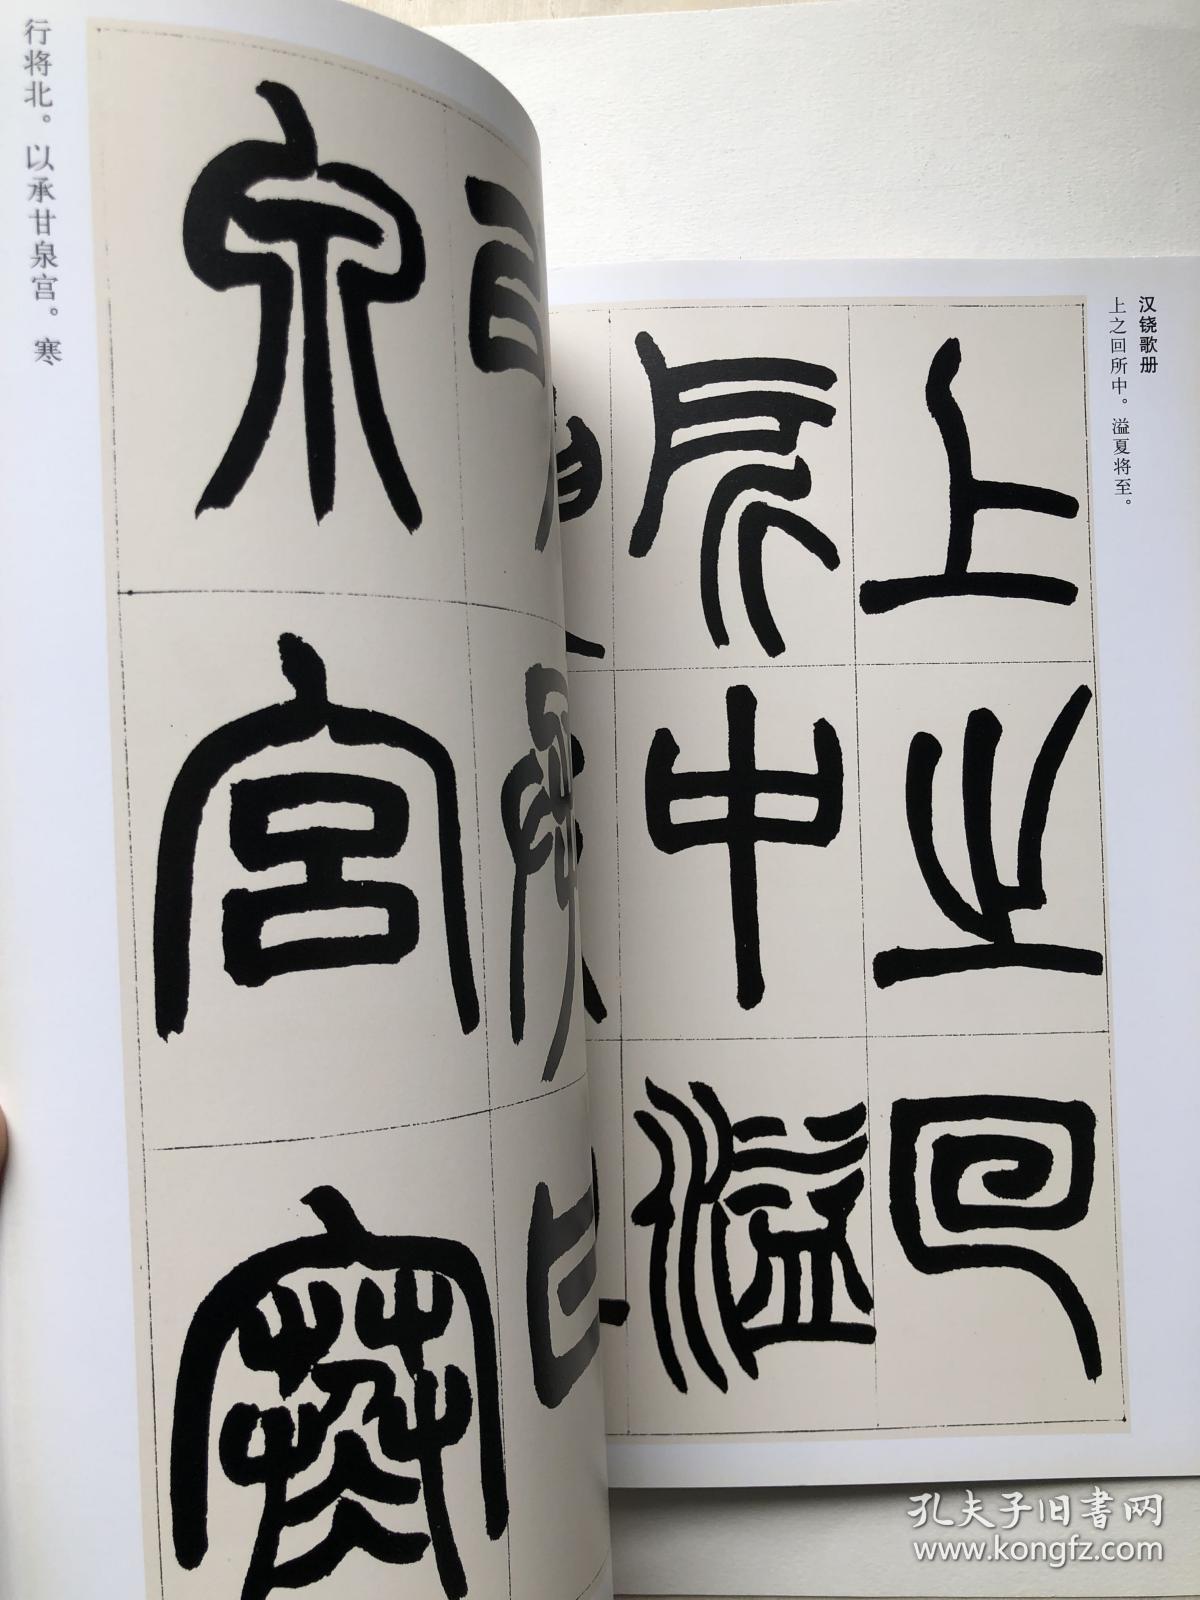 汉铙歌册
上之回所中。溢夏将至。
上之回
所中溢
甘
泉宫寒
行将北。以承甘泉宫。寒
孔夫子旧书网
www.kongfz.com